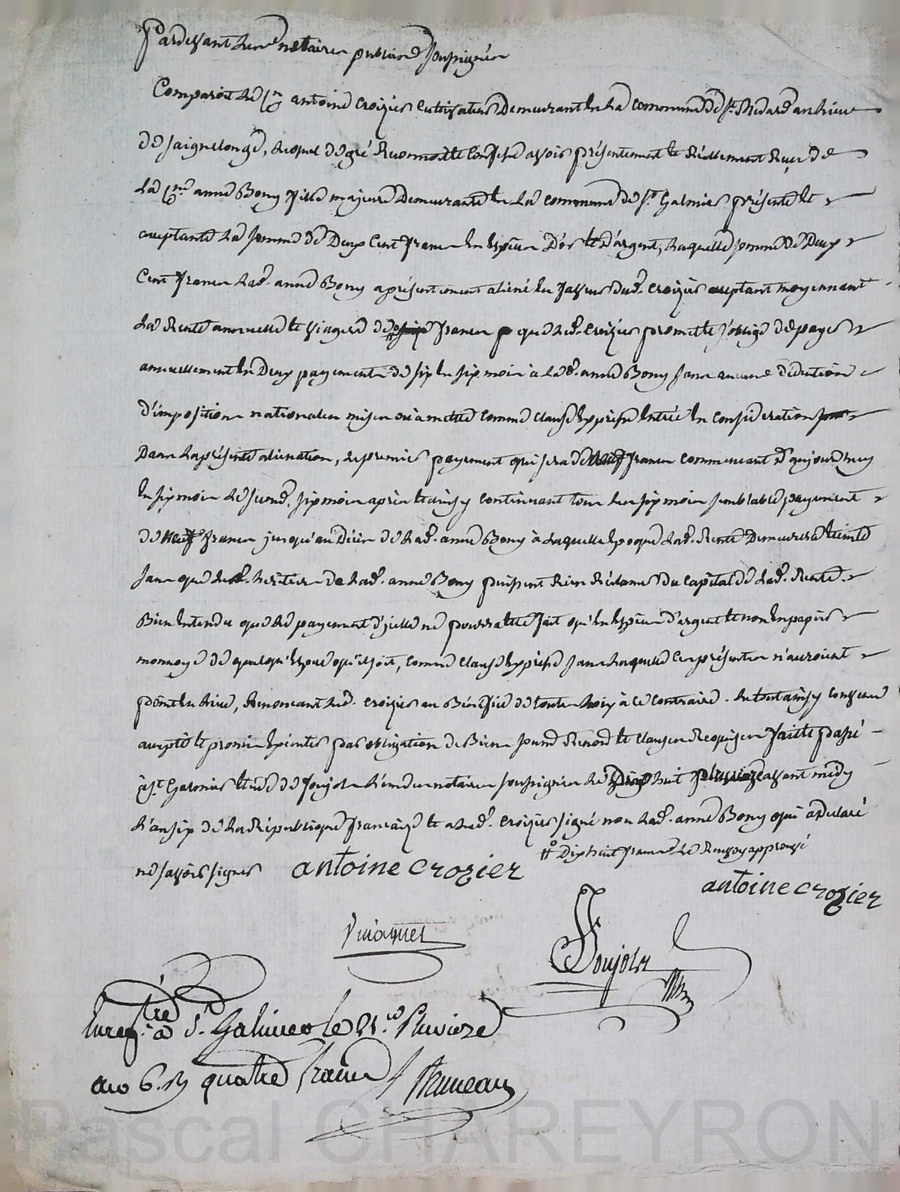 Pardevant les notaires publics soussignés
Comparoit le Cen antoine croizier cultivateur Demeurant en la commune de St Medard au lieu
de Saignelonge, lequel de gré Reconnoit et Confesse avoir présentement et Réellement Reçu de
la Cne anne Bony fille majeure Demeurante en la commune de St Galmier présente et
aceptante La somme de Deux Cent francs en Espèces D'or et d'argent, Laquelle somme de Deux
Cent francs Lad. anne Bony a présentement aliéné en faveur dud. Croizier aceptant moyennant
La Rente annuelle et viagère de francs que led. Croizier promet et s'oblige de payer
annuellement en Deux payements de six en six mois à Lad. anne Bony sans aucune déduction
d'impositions nationales mises ou à mettre comme clause Expresse Entrée En considération
Dans la présente aliénation, le premier payement qui sera de neuf francs commencant d'aujourd'huy
En six mois le second six mois après et ainsy continuant tous les six mois semblable payement
de neuf francs jusqu'au décès de Lad. anne Bony à Laquelle Epoque Lad. Rente Demeurera Eteinte
sans que les héritiers de Lad. anne Bony puissent Rien Réclamer du Capital de Lad. Rente.
Bien Entendu que le payement d'icelle ne pourra être fait qu'en Espèces d'argent et non en papier
monnoye de quelqu'Espèce qu'il soit, comme clause Expresse sans Laquelle les présentes n'auroient
point eu lieu, Renoncant led. Croizier au Bénéfice de toutes Loix à ce contraire. En tout ainsy convenu
accepté et promis Exécuter par obligation de Biens soumis Renoncé et clauses Requises fait et passé
à St Galmier Etude de Soujols L'un des notaires soussignés Le Dix huit pluviose avant midy
L'an six de La République française et a Led. Croizier signé non Lad. anne Bony qui a déclaré
ne savoir signer
Dix huit francs Le Renvoy approuvé
antoine crozier
antoine crozier
Soujols
Enregtré à St Galmier le 21 Pluviose
an 6. R quatre francs
Pascal CHAREYRON